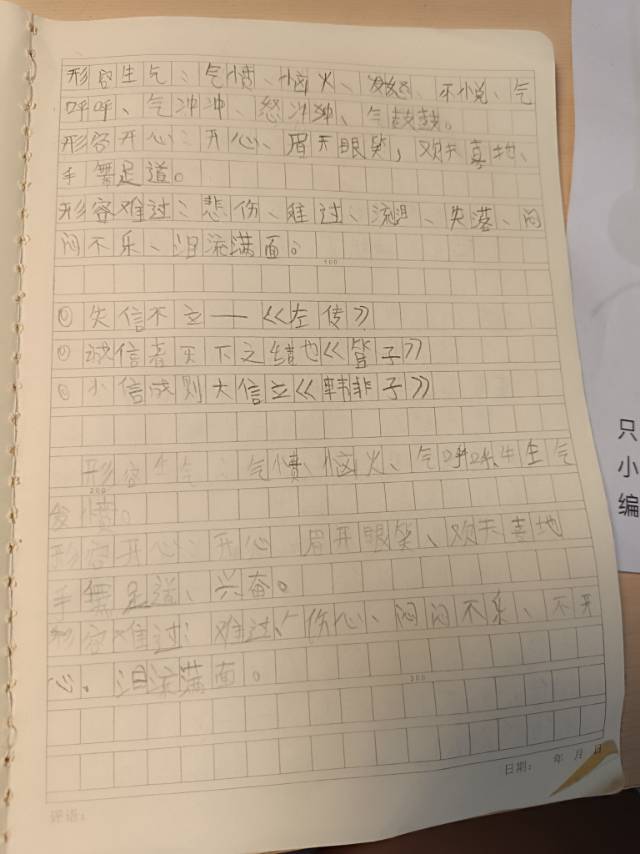 形容生气：气愤、恼火、发怒、不悦、气
呼呼、气冲冲、怒冲冲、气鼓鼓。
形容开心：开心、眉开眼笑，欢天喜地、
手舞足道。
形容难过：悲伤、难过、流泪、失落、闷
闷不乐、泪流满面。
100
① 失信不立——《左传》
② 诚信者天下之结也《管子》
③ 小信成则大信立《韩非子》
形容生气：气愤、恼火、气呼呼、生气
200
发愤。
形容开心：开心 眉开眼笑、欢天喜地
手舞足道、兴奋。
形容难过：难过、伤心、闷闷不乐、不开
心。泪流满面。
300
日期： 年 月 日
评语：
只
小
编